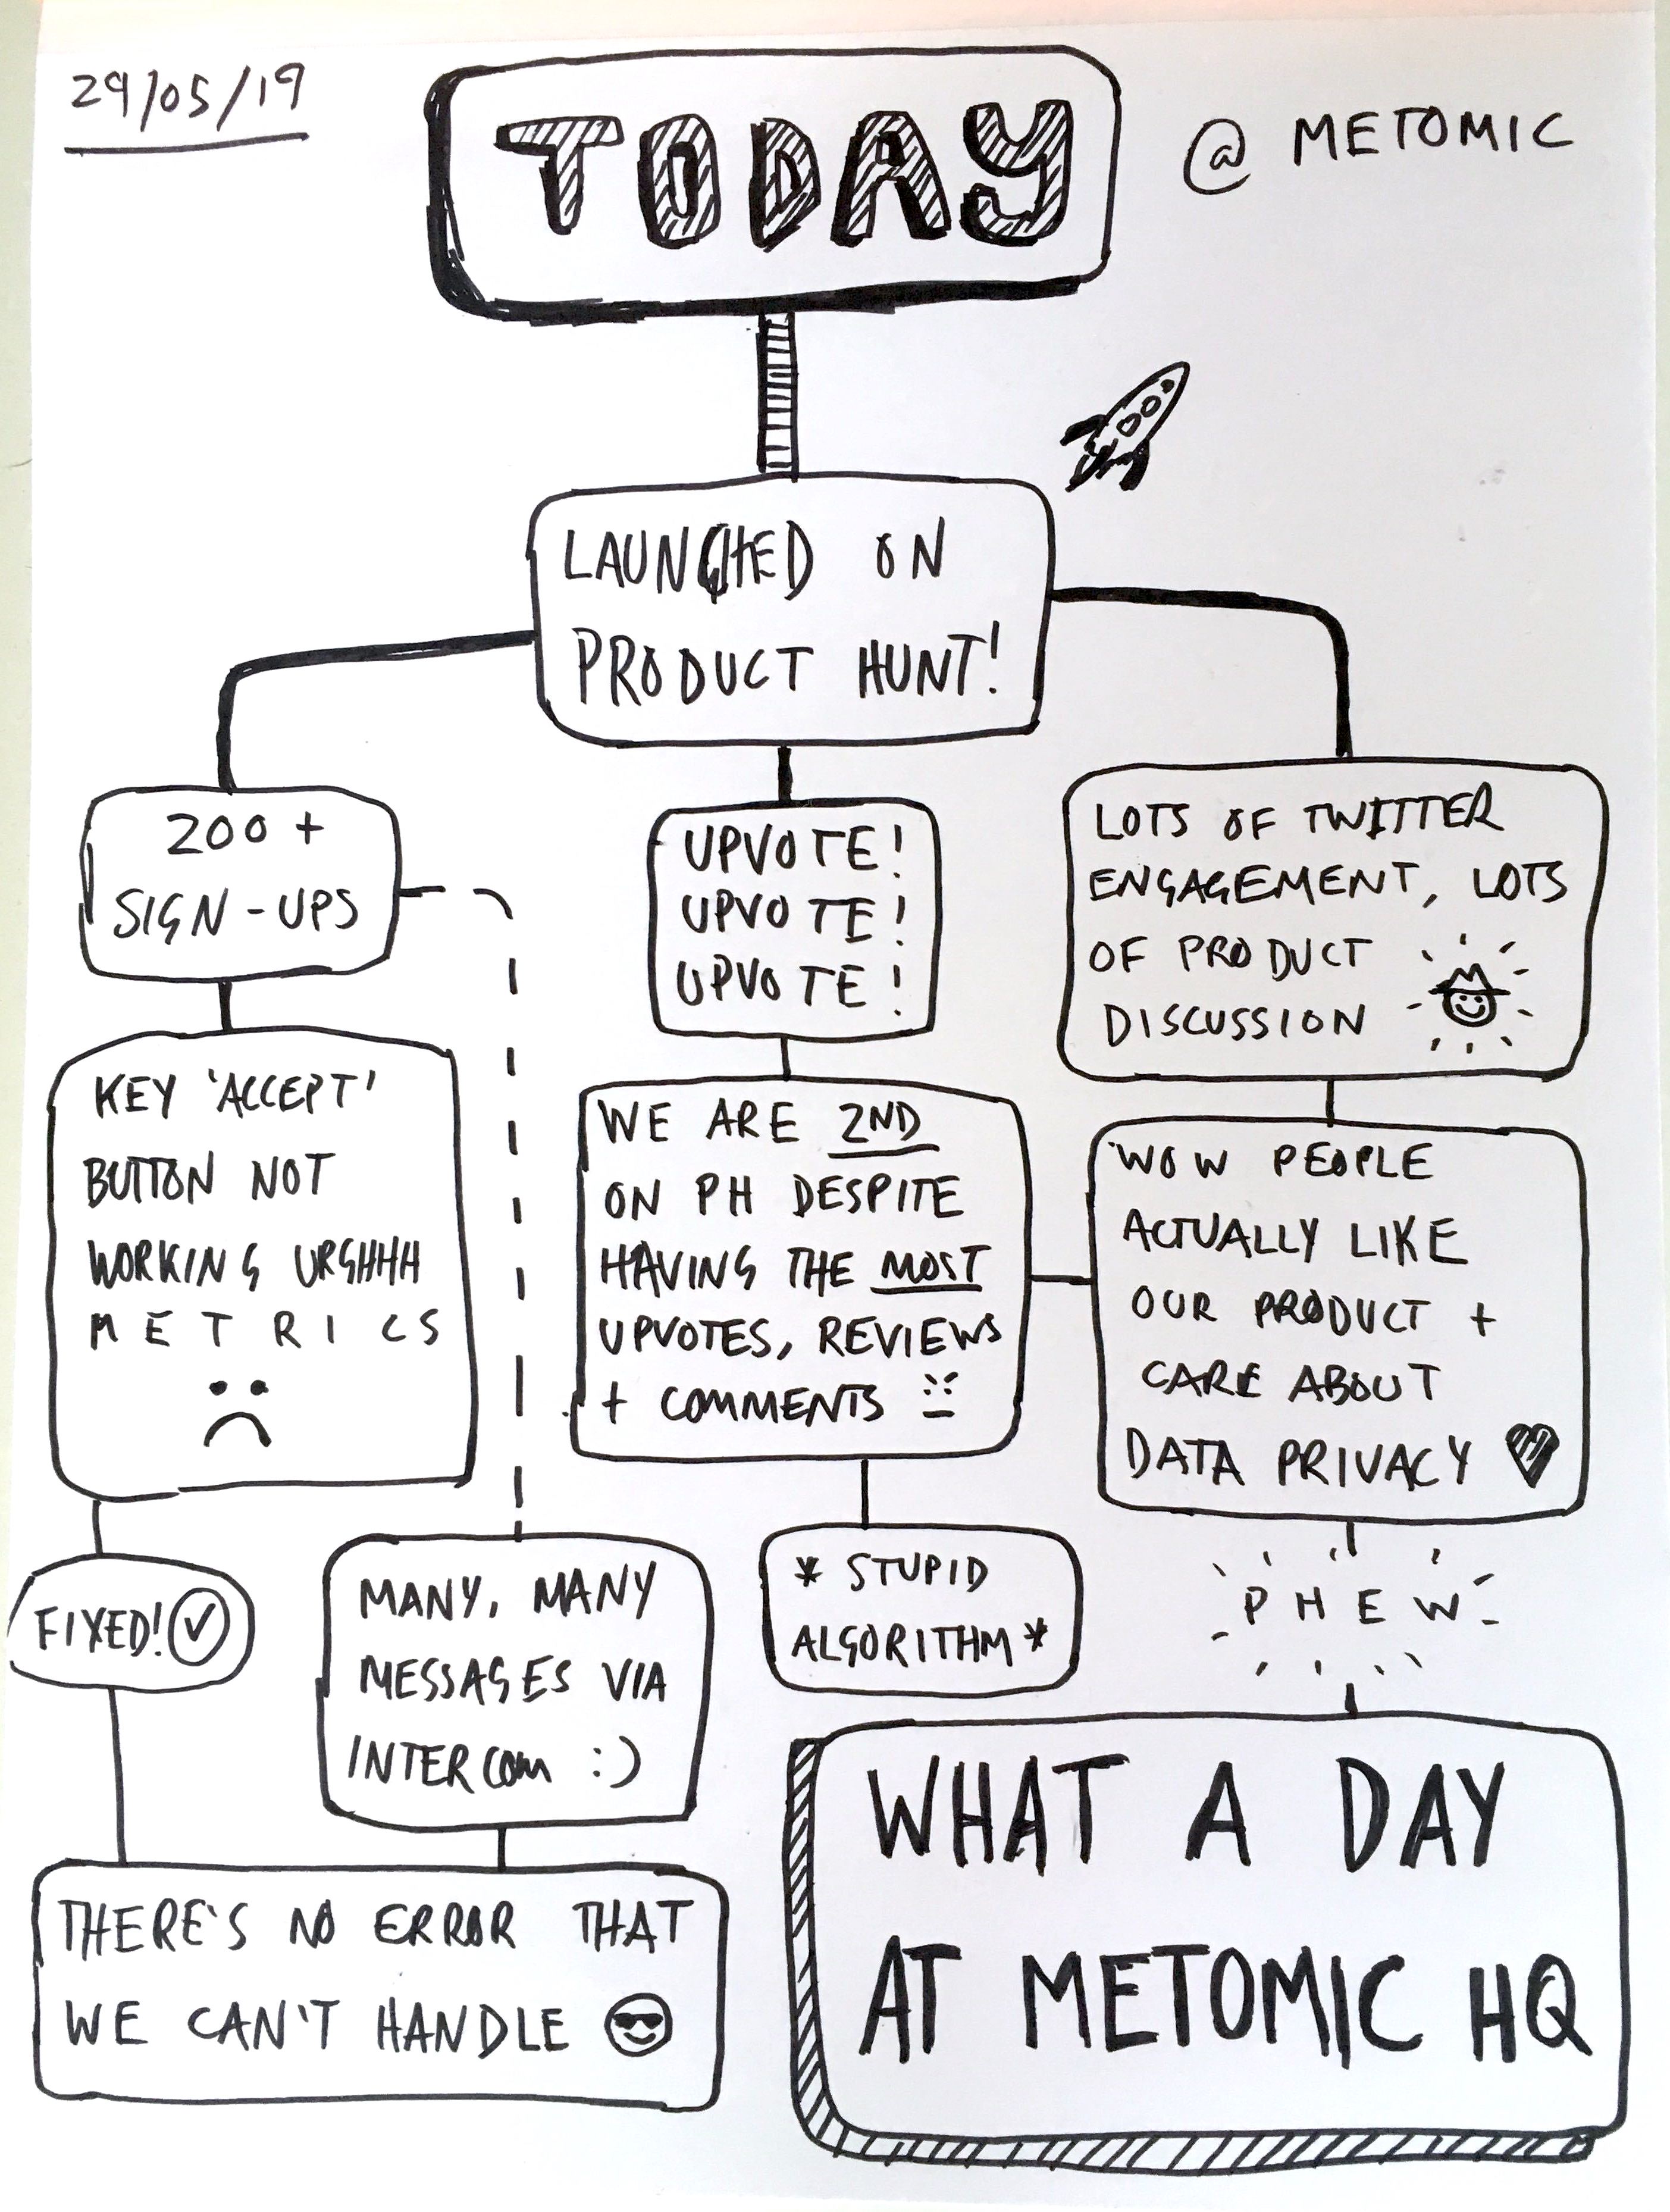 29/05/19
TODAY
@ METOMIC
LAUNCHED ON
PRODUCT HUNT!
200 +
SIGN-UPS
UPVOTE!
UPVOTE!
UPVOTE!
LOTS OF TWITTER
ENGAGEMENT, LOTS
OF PRODUCT
DISCUSSION
KEY 'ACCEPT'
BUTTON NOT
WORKING URGHHH
METRICS
WE ARE 2ND
ON PH DESPITE
HAVING THE MOST
UPVOTES, REVIEWS
+ COMMENTS
WOW PEOPLE
ACTUALLY LIKE
OUR PRODUCT +
CARE ABOUT
DATA PRIVACY
FIXED!
MANY, MANY
MESSAGES VIA
INTERCOM :)
* STUPID
ALGORITHM *
PHEW
THERE'S NO ERROR THAT
WE CAN'T HANDLE
WHAT A DAY
AT METOMIC HQ